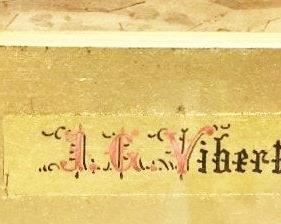 J. G. Vibert